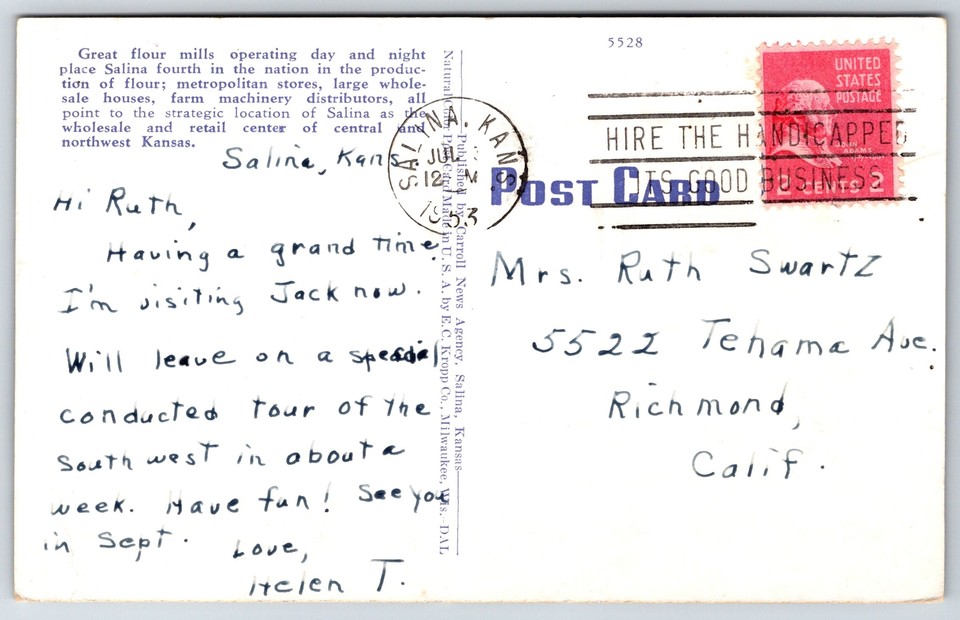 Great flour mills operating day and night
place Salina fourth in the nation in the produc-
tion of flour; metropolitan stores, large whole-
sale houses, farm machinery distributors, all
point to the strategic location of Salina as the
wholesale and retail center of central and
northwest Kansas.
Salina, Kans
Hi Ruth,
Having a grand time.
I'm visiting Jack now.
Will leave on a special
conducted tour of the
Southwest in about a
week. Have fun! See you
in Sept.
Love,
Helen T.
Published by Carroll News Agency, Salina, Kansas
Natural Post Card Made in U. S. A. by E. C. Kropp Co., Milwaukee, Wis.-DAL
5528
POST CARD
SALINA, KANS.
JUL
12 M
1953
HIRE THE HANDICAPPED
ITS GOOD BUSINESS
UNITED
STATES
POSTAGE
JOHN ADAMS
2 CENTS 2
Mrs. Ruth Swartz
5522 Tehama Ave.
Richmond,
Calif.